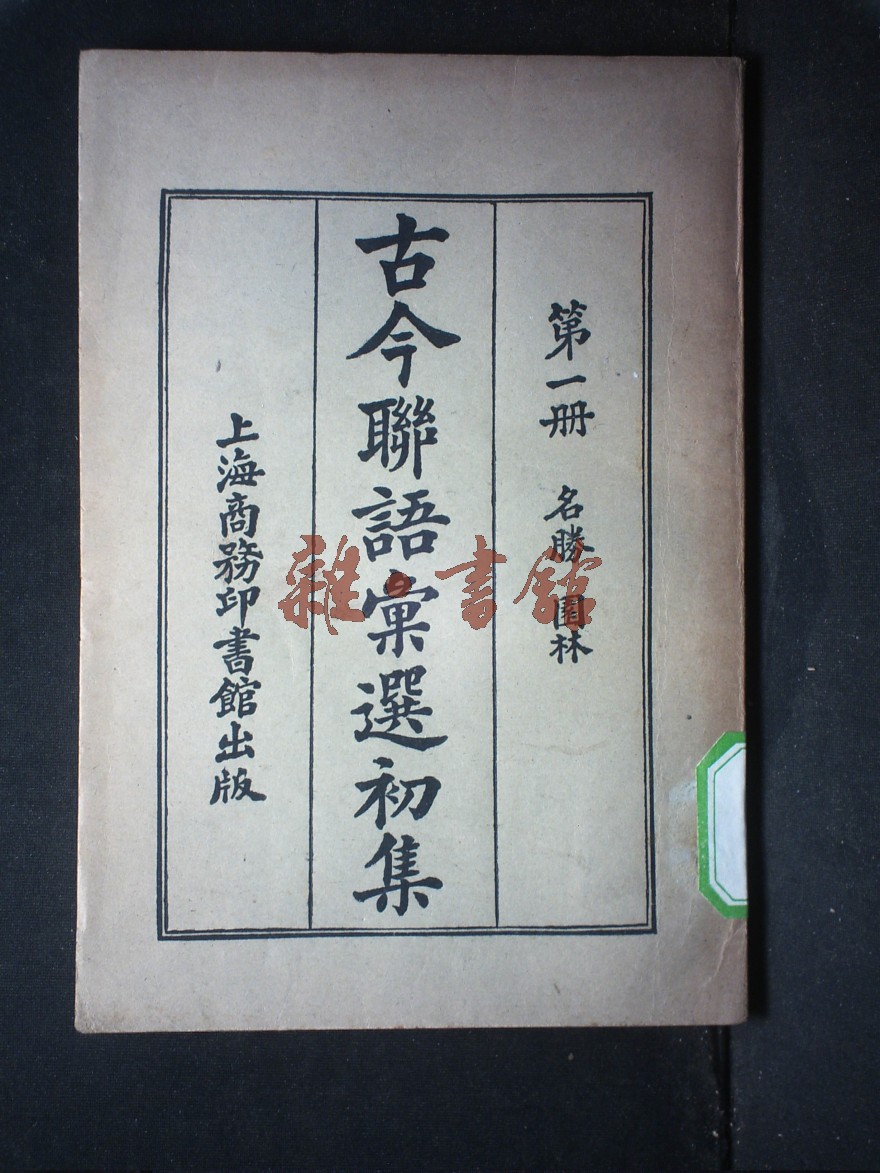 第一册 名勝 園林
古今聯語彙選初集
上海商務印書館出版
雜·書館